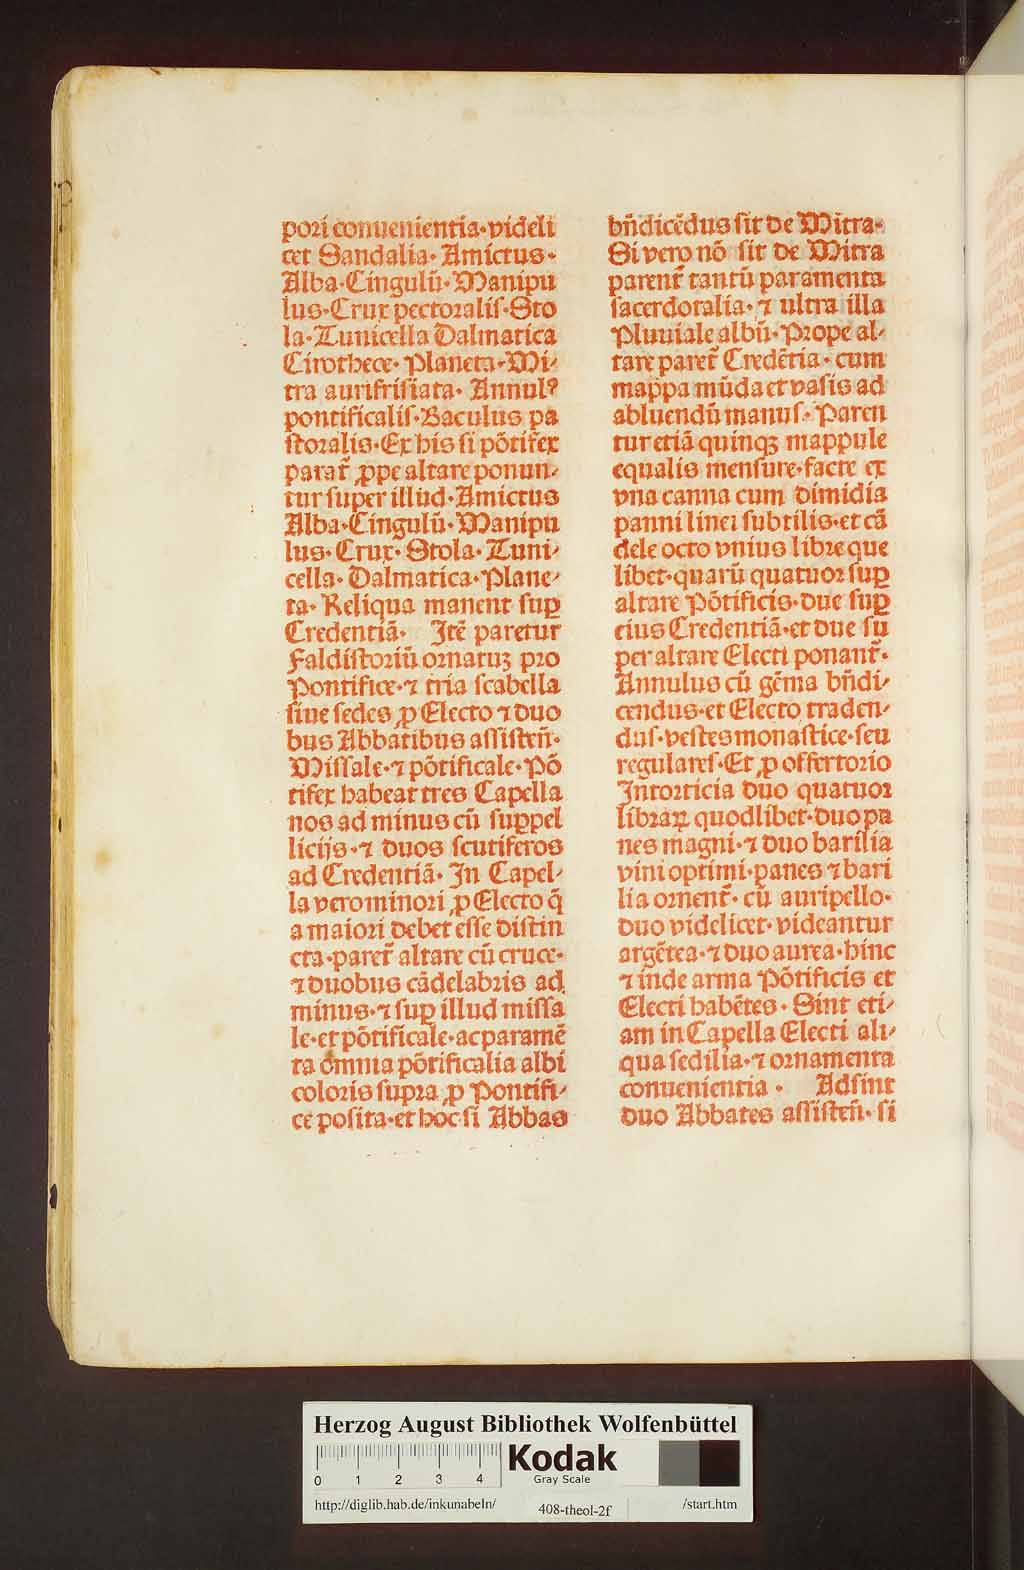 pori conuenientia·videli
cet Sandalia·Amictus·
Alba·Cingulū·Manipu
lus·Crux pectoralis·Sto
la·Tunicella Dalmatica
Cirothece·Planeta·Mi⸗
tra aurifrisiata·Annulꝰ
pontificalis·Baculus pa
storalis·Ex his si pōtifex
parat᷑ ꝓpe altare ponun⸗
tur super illud·Amictus
Alba·Cingulū·Manipu
lus·Crux·Stola·Tuni⸗
cella·Dalmatica·Plane⸗
ta·Reliqua manent suꝑ
Credentiā· Itē paretur
Faldistoriū ornatuꝫ pro
Pontifice·⁊ tria scabella
siue sedes ꝓ Electo ⁊ duo
bus Abbatibus assisten̄·
Missale·⁊ pōtificale·Pō
tifex habeat tres Capella
nos ad minus cū suꝑpel
licijs·⁊ duos scutiferos
ad Credentiā·In Capel⸗
la vero minori ꝓ Electo q̄
a maiori debet esse distin
cta·paret᷑ altare cū cruce·
⁊ duobus cādelabris ad
minus·⁊ suꝑ illud missa
le·et pōtificale·ac paramē
ta omnia pōtificalia albi
coloris supra ꝓ Pontifi⸗
ce posita·et hoc·si Abbas
bn̄dicēdus sit de Mitra·
Si vero nō sit de Mitra
parent᷑ tantū paramenta
sacerdotalia·⁊ ultra illa
Pluuiale albū·Prope al⸗
tare paret᷑ Credētia·cum
mappa mūda et vasis ad
abluendū manus·Paren
tur etiā quinqꝫ mappule
equalis mensure·facte ex
vna canna cum dimidia
panni linei subtilis·et cā
dele octo vnius libre que
libet·quarū quatuor suꝑ
altare Pōtificis·due suꝑ
eius Credentiā·et due su
per altare Electi ponant᷑·
Annulus cū gēma bn̄di⸗
cendus·et Electo traden⸗
dus·vestes monastice·seu
regulares·Et ꝓ offertorio
Intorticia duo quatuor
libraꝝ quodlibet·duo pa
nes magni·⁊ duo barilia
vini optimi·panes ⁊ bari
lia ornent᷑·cū auripello·
duo videlicet·videantur
argētea·⁊ duo aurea·hinc
⁊ inde arma Pōtificis et
Electi habētes·Sint eti⸗
am in Capella Electi ali⸗
qua sedilia·⁊ ornamenta
conuenientia· Adsint
duo Abbates assisten̄·si
Herzog August Bibliothek Wolfenbüttel
0 1 2 3 4
Kodak
Gray Scale
http://diglib.hab.de/inkunabeln/ 408-theol-2f /start.htm